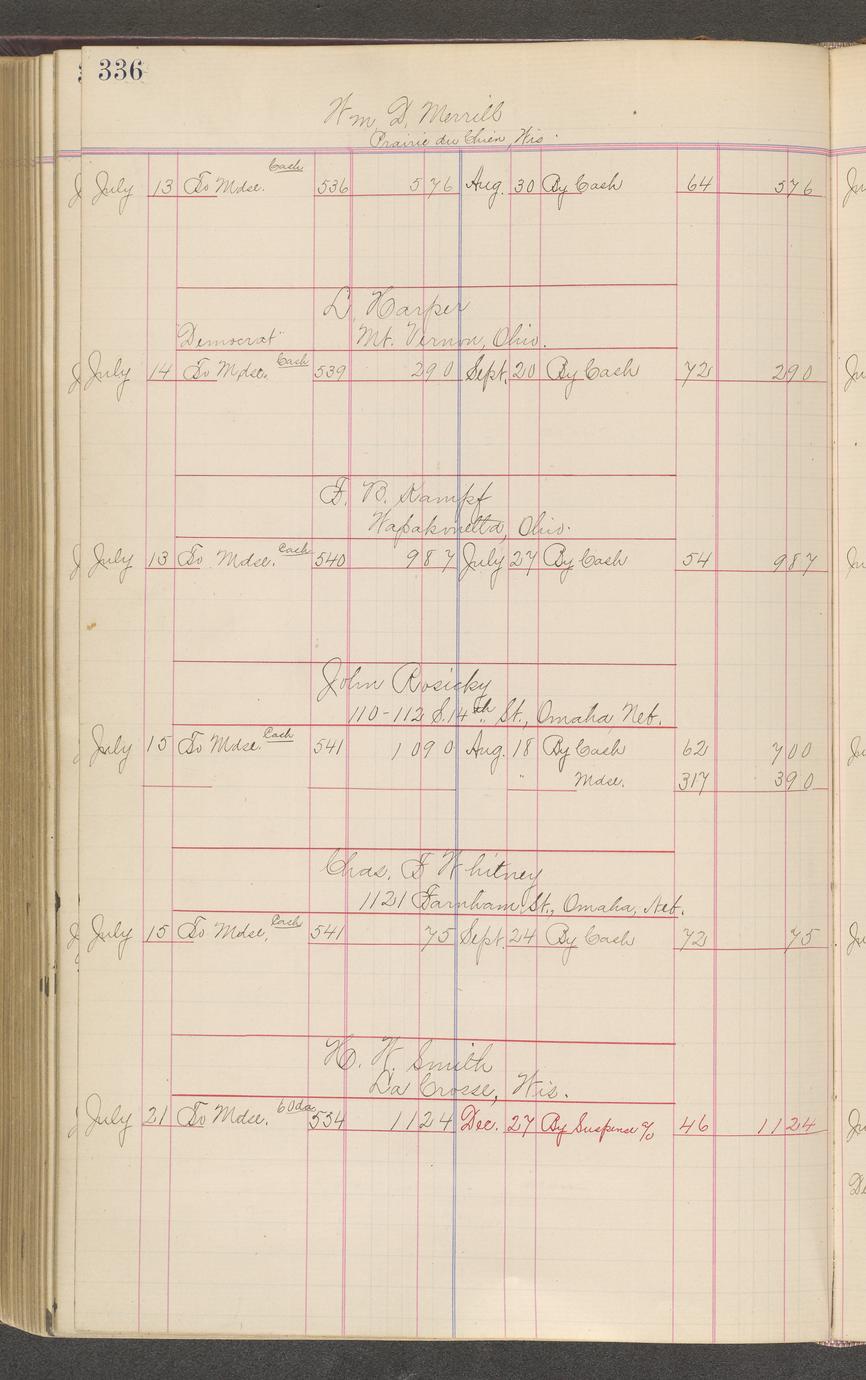 336
Wm D. Merrill
Prairie du Chien, Wis.
July 13 To Mdse. Cash 536 5 76 Aug. 30 By Cash 64 5 76
L. Harper
"Democrat" Mt. Vernon, Ohio.
July 14 To Mdse. Cash 539 2 90 Sept. 20 By Cash 72 2 90
F. B. Kampf
Wapakonetta, Ohio.
July 13 To Mdse. Cash 540 9 87 July 27 By Cash 54 9 87
John Rosicky
110-112 S. 14th St., Omaha Neb.
July 15 To Mdse. Cash 541 10 90 Aug. 18 By Cash 62 7 00
" Mdse. 317 3 90
Chas. F Whitney
1121 Farnham St., Omaha, Neb.
July 15 To Mdse. Cash 541 75 Sept. 24 By Cash 72 75
H. W. Smith
La Crosse, Wis.
July 21 To Mdse. 60 da 554 11 24 Dec. 27 By Suspense a/c 46 11 24